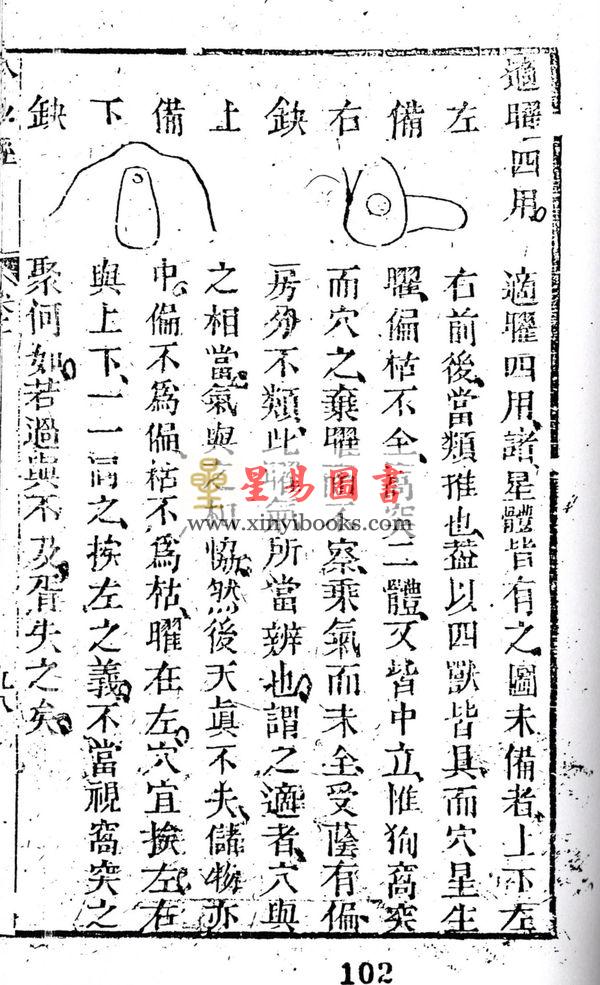 適曜四用
左備右缺
上備下缺
適曜四用、諸星體皆有之圖未備者、上下左
右前後、當類推也、蓋以四獸皆具、而穴星生
曜、偏枯不全、窩突二體、又皆中立、惟狥窩突
而穴之、棄曜而不察、乘氣而未全、受蔭有偏
房分不類、此曜氣所當辨也、謂之適者、穴與
之相當、氣與 和恊、然後天眞不失、儲物亦
中、偏不爲偏、枯不爲枯、曜在左、穴宜挨左、右
與上下、一一同之、挨左之義、不當視窩突之
聚何如、若過與不及、胥失之矣
卷二
星易圖書
www.xinyibooks.com
102